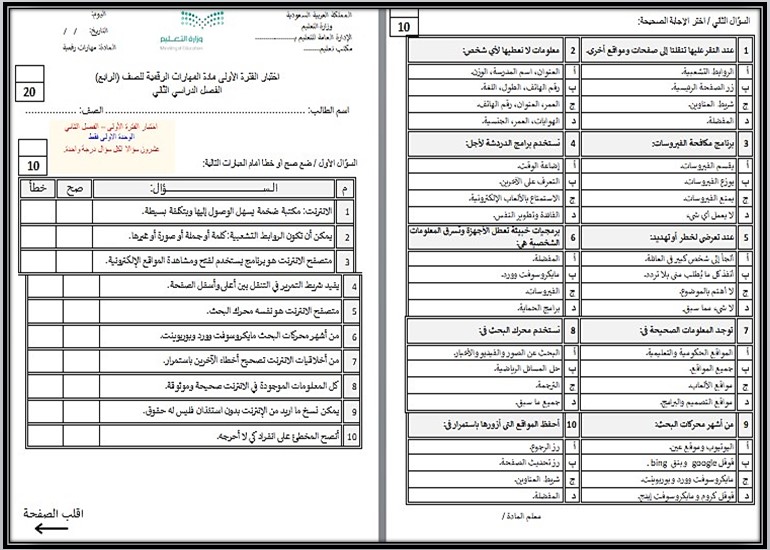 المملكة العربية السعودية
وزارة التعليم
الإدارة العامة للتعليم بـ
مكتب تعليم
وزارة التعليم
Ministry of Education
اليوم:
التاريخ: / /
المادة: مهارات رقمية
20
اختبار الفترة الأولى مادة المهارات الرقمية للصف (الرابع)
الفصل الدراسي الثاني
اسم الطالب: ............ الصف: ............
اختبار الفترة الأولى – الفصل الثاني
الوحدة الأولى فقط
عشرون سؤالا لكل سؤال درجة واحدة.
10
السؤال الأول / ضع صح أو خطأ أمام العبارات التالية:
م الســـؤال: صح خطأ
1 الانترنت: مكتبة ضخمة يسهل الوصول إليها وبتكلفة بسيطة.
2 يمكن أن تكون الروابط التشعبية: كلمة أو جملة أو صورة أو غيرها.
3 متصفح الانترنت هو برنامج يستخدم لفتح ومشاهدة المواقع الإلكترونية.
4 يفيد شريط التمرير في التنقل بين أعلى وأسفل الصفحة.
5 متصفح الانترنت هو نفسه محرك البحث.
6 من أشهر محركات البحث مايكروسوفت وورد وبوربوينت.
7 من أخلاقيات الانترنت تصحيح أخطاء الآخرين باستمرار.
8 كل المعلومات الموجودة في الانترنت صحيحة وموثوقة.
9 يمكن نسخ ما اريد من الإنترنت بدون استئذان فليس له حقوق.
10 أنصح المخطئ على انفراد كي لا أحرجه.
اقلب الصفحة
السؤال الثاني / اختر الإجابة الصحيحة:
10
1 عند النقر عليها تنقلنا إلى صفحات ومواقع أخرى.
أ الروابط التشعبية.
ب زر الصفحة الرئيسية.
ج شريط العناوين.
د المفضلة.
2 معلومات لا نعطيها لأي شخص:
أ العنوان، اسم المدرسة، الوزن.
ب رقم الهاتف، الطول، اللغة.
ج العمر، العنوان، رقم الهاتف.
د الهوايات، العمر، الجنسية.
3 برنامج مكافحة الفيروسات:
أ يقسم الفيروسات.
ب يوزع الفيروسات.
ج يمنع الفيروسات.
د لا يعمل أي شيء.
4 نستخدم برامج الدردشة لأجل:
أ إضاعة الوقت.
ب التعرف على الآخرين.
ج الاستمتاع بالألعاب الإلكترونية.
د الفائدة وتطوير النفس.
5 عند تعرضي لخطر أو تهديد:
أ ألجأ إلى شخص كبير في العائلة.
ب أنفذ كل ما يُطلب مني بلا تردد.
ج لا أهتم بالموضوع.
د لا شيء مما سبق.
6 برمجيات خبيثة تعطل الأجهزة وتسرق المعلومات الشخصية هي:
أ المفضلة.
ب مايكروسوفت وورد.
ج الفيروسات.
د برامج الحماية.
7 توجد المعلومات الصحيحة في:
أ المواقع الحكومية والتعليمية.
ب جميع المواقع.
ج مواقع الألعاب.
د مواقع التصميم والبرامج.
8 نستخدم محرك البحث في:
أ البحث عن الصور والفيديو والأخبار.
ب حل المسائل الرياضية.
ج الترجمة.
د جميع ما سبق.
9 من أشهر محركات البحث:
أ اليوتيوب وموقع عين.
ب قوقل google وبنق bing .
ج مايكروسوفت وورد وبوربوينت.
د قوقل كروم و مايكروسوفت إيدج.
10 أحفظ المواقع التي أزورها باستمرار في:
أ زر الرجوع.
ب زر تحديث الصفحة.
ج شريط العناوين.
د المفضلة.
معلم المادة /